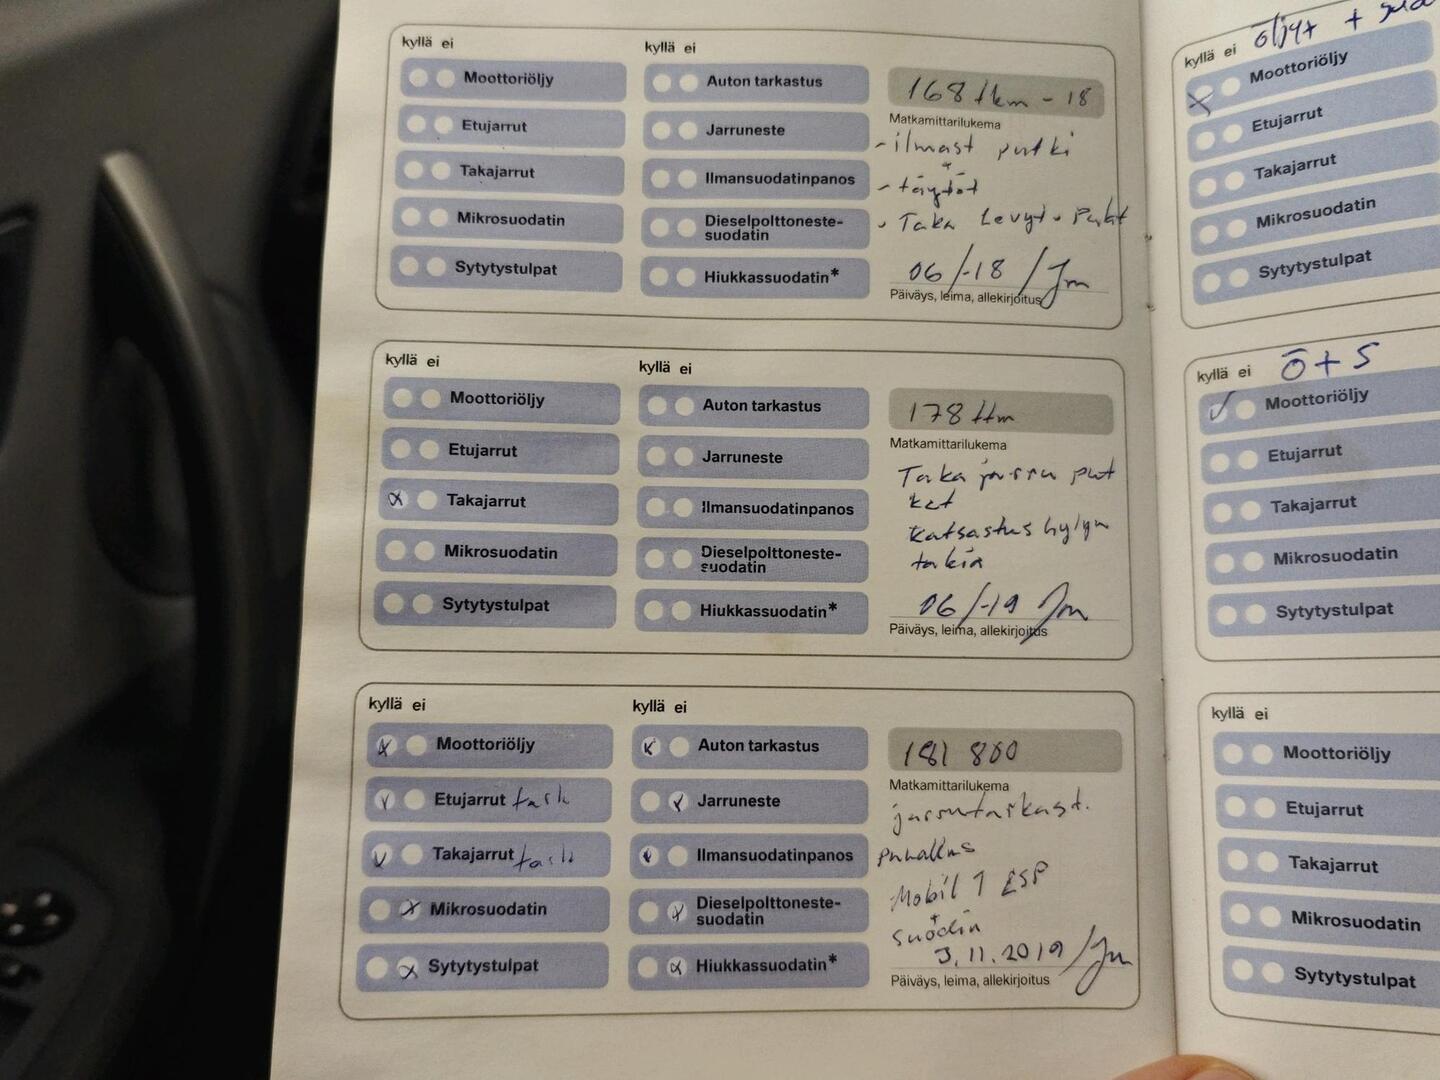 kyllä ei
Moottoriöljy
Etujarrut
Takajarrut
Mikrosuodatin
Sytytystulpat
kyllä ei
Auton tarkastus
Jarruneste
Ilmansuodatinpanos
Dieselpolttoneste-
suodatin
Hiukkassuodatin*
168 tkm - 18
Matkamittarilukema
- ilmast putki
+
- täytöt
- Taka Levyt + Palat
06/-18 / Jm
Päiväys, leima, allekirjoitus
kyllä ei
Moottoriöljy
Etujarrut
Takajarrut
Mikrosuodatin
Sytytystulpat
kyllä ei
Auton tarkastus
Jarruneste
Ilmansuodatinpanos
Dieselpolttoneste-
suodatin
Hiukkassuodatin*
178 tkm
Matkamittarilukema
Taka jarru put
ket
katsastus hylyn
takia
06/-19 Jm
Päiväys, leima, allekirjoitus
kyllä ei
Moottoriöljy
Etujarrut tark
Takajarrut tark
Mikrosuodatin
Sytytystulpat
kyllä ei
Auton tarkastus
Jarruneste
Ilmansuodatinpanos
Dieselpolttoneste-
suodatin
Hiukkassuodatin*
181 800
Matkamittarilukema
jarrutarkast.
puhallus
Mobil 1 ESP
+
suodin
3.11.2019 / Jm
Päiväys, leima, allekirjoitus
öljyt +
kyllä ei
Moottoriöljy
Etujarrut
Takajarrut
Mikrosuodatin
Sytytystulpat
kyllä ei ö + S
Moottoriöljy
Etujarrut
Takajarrut
Mikrosuodatin
Sytytystulpat
kyllä ei
Moottoriöljy
Etujarrut
Takajarrut
Mikrosuodatin
Sytytystulpat